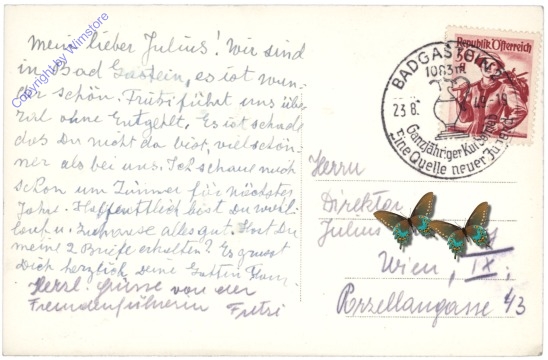 Mein lieber Julius! Wir sind
in Bad Gastein, es ist wun-
der schön. Fritzi führt uns über
all ohne Entgehlt. Es ist schade
das Du nicht da bist, viel schön-
ner als bei uns. Ich schaue mich
schon um Zimmer für nächstes
Jahr. Hoffentlich bist Du wohl-
auf u. Zuhause alles gut. Hast Du
meine 2 Briefe erhalten? Es grüsst
Dich herzlich deine Gattin
Herzl. Grüsse von der
Fremdenführerin Fritzi
Copyright by Wimstore
Republik Österreich
BADGASTEIN
1083m
23.8.
Ganzjähriger Kurbetrieb
Eine Quelle neuer Jugend
Herrn
Direktor
Julius
Wien, IX.
Porzellangasse 43